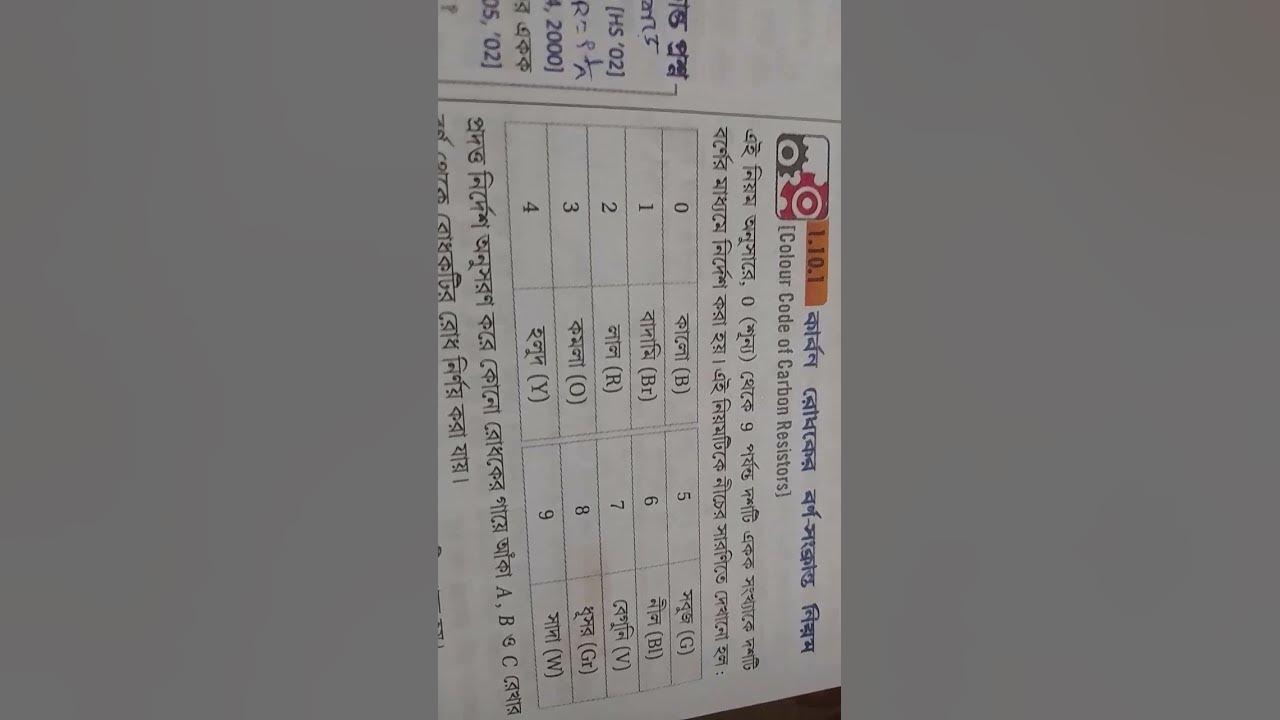 ন্ত প্রশ্ন
[HS '02]
R = ρ
4, 2000]
র একক
05, '02]
1.10.1 কার্বন রোধকের বর্ণ-সংক্রান্ত নিয়ম
[Colour Code of Carbon Resistors]
এই নিয়ম অনুসারে, 0 (শূন্য) থেকে 9 পর্যন্ত দশটি একক সংখ্যাকে দশটি
বর্ণের মাধ্যমে নির্দেশ করা হয়। এই নিয়মটিকে নীচের সারণিতে দেখানো হল :
0 কালো (B) 5 সবুজ (G)
1 বাদামি (Br) 6 নীল (Bl)
2 লাল (R) 7 বেগুনি (V)
3 কমলা (O) 8 ধূসর (Gr)
4 হলুদ (Y) 9 সাদা (W)
প্রদত্ত নির্দেশ অনুসরণ করে কোনো রোধকের গায়ে আঁকা A, B ও C রেখার
বর্ণ থেকে রোধকটির রোধ নির্ণয় করা যায়।